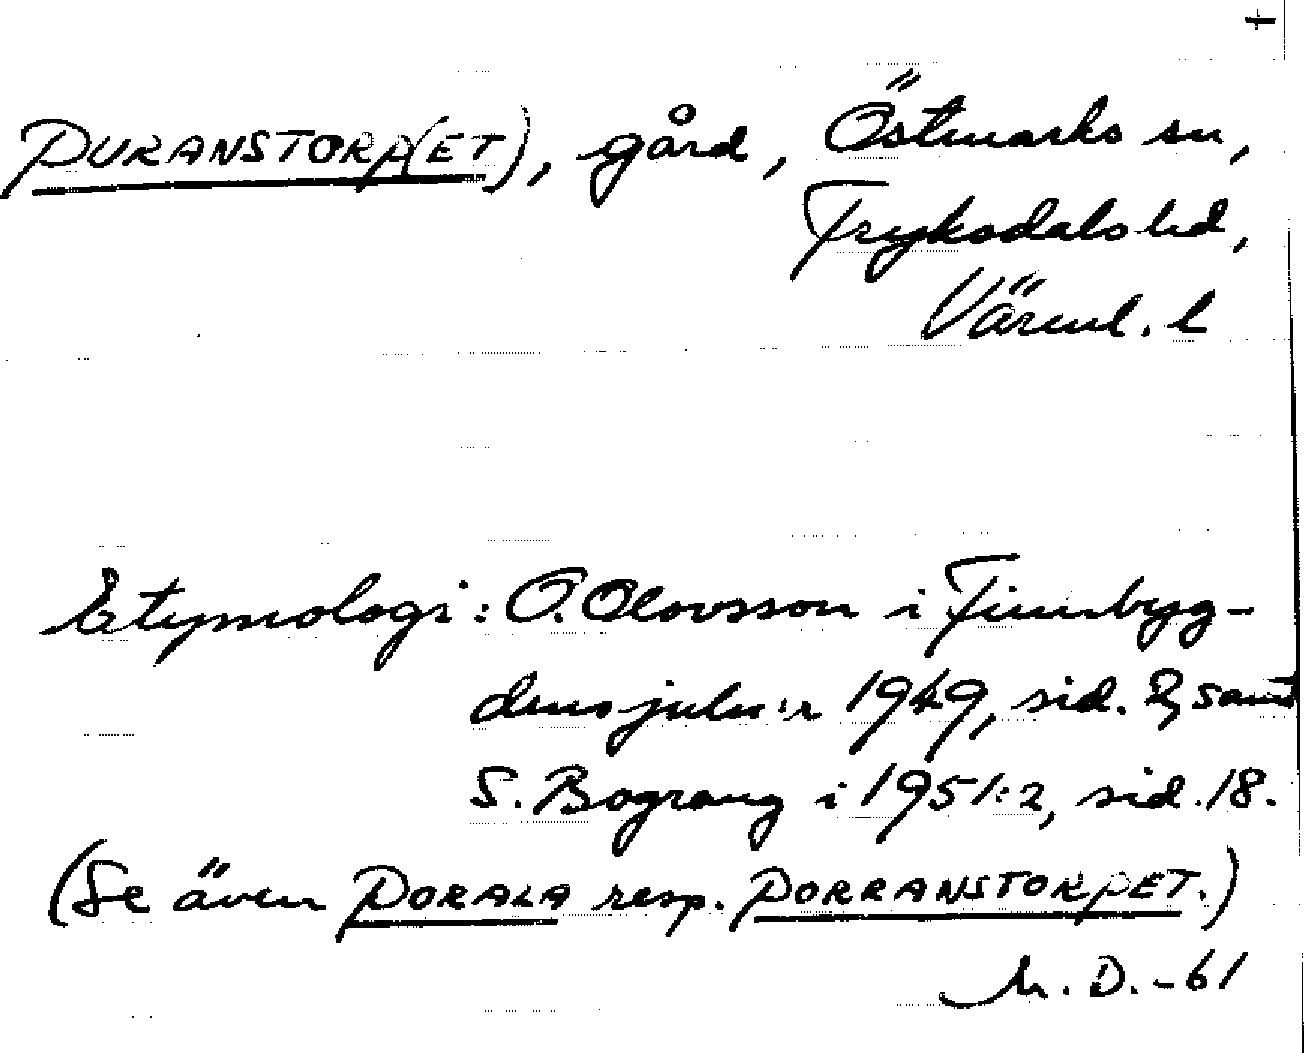 †
PURANSTORP(ET), gård, Östmarks sn,
Fryksdals hd,
Värml. l
Etymologi: O. Olovsson i Finnbyg-
dens julnr 1949, sid. 2, samt
S. Bograng i 1951:2, sid. 18.
(Se även PORALA resp. PORRANSTORPET.)
M. D. -61